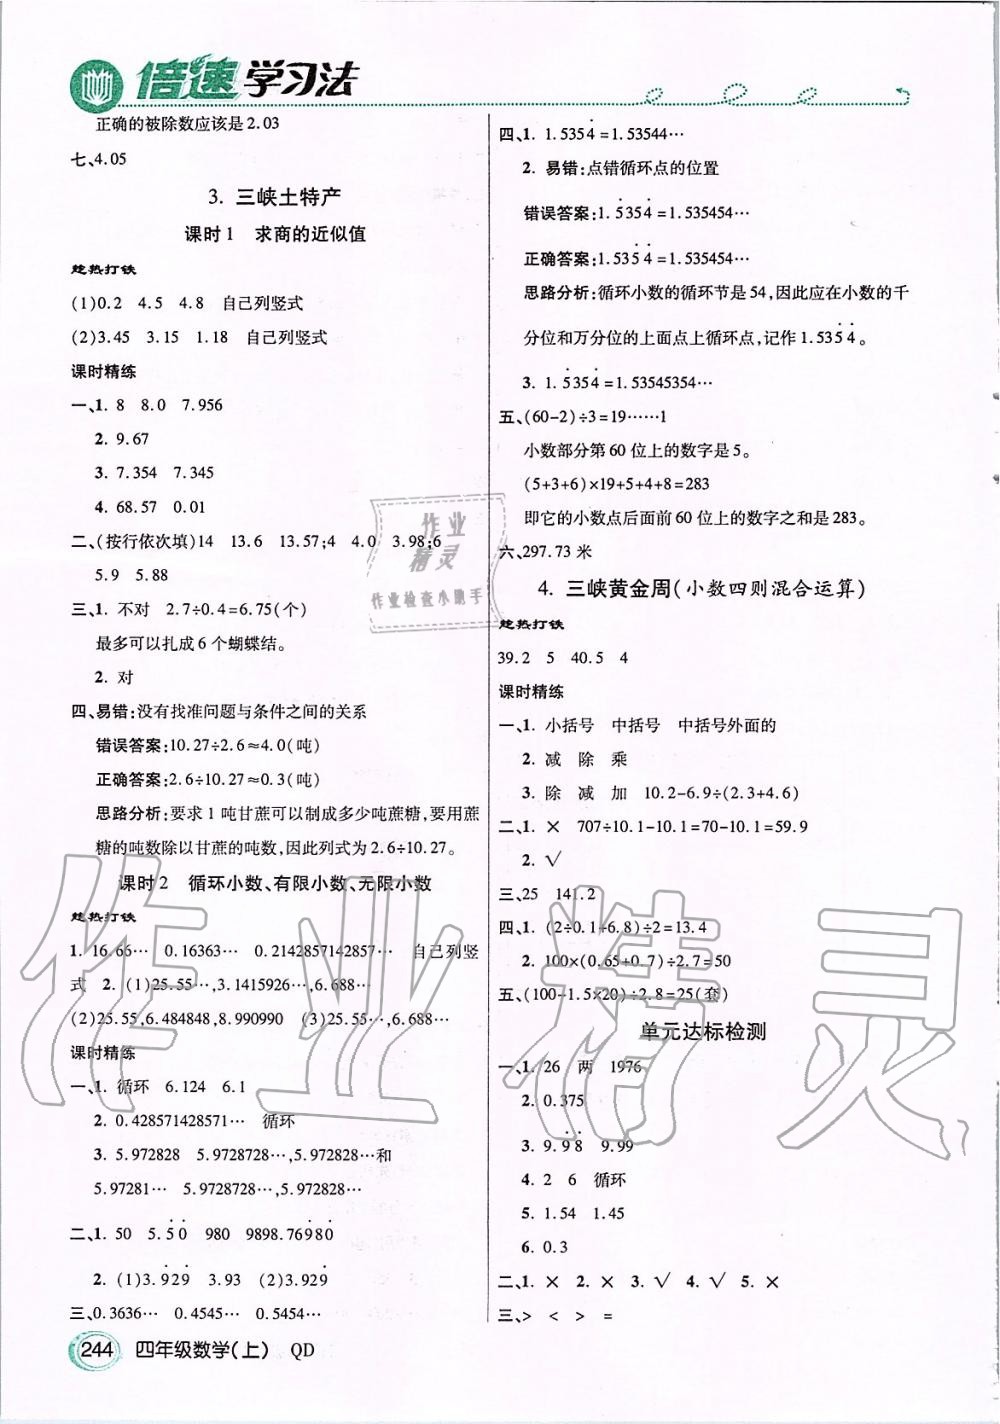 倍速学习法
正确的被除数应该是2.03
七、4.05
3. 三峡土特产
课时1 求商的近似值
趁热打铁
(1)0.2 4.5 4.8 自己列竖式
(2)3.45 3.15 1.18 自己列竖式
课时精练
一、1. 8 8.0 7.956
2. 9.67
3. 7.354 7.345
4. 68.57 0.01
二、(按行依次填)14 13.6 13.57;4 4.0 3.98;6
5.9 5.88
三、1. 不对 2.7÷0.4=6.75(个)
最多可以扎成6个蝴蝶结。
2. 对
四、易错:没有找准问题与条件之间的关系
错误答案:10.27÷2.6≈4.0(吨)
正确答案:2.6÷10.27≈0.3(吨)
思路分析:要求1吨甘蔗可以制成多少吨蔗糖,要用蔗
糖的吨数除以甘蔗的吨数,因此列式为2.6÷10.27。
课时2 循环小数、有限小数、无限小数
趁热打铁
1. 16.66… 0.16363… 0.2142857142857… 自己列竖
式 2. (1)25.55…,3.1415926…,6.688…
(2)25.55,6.484848,8.990990 (3)25.55…,6.688…
课时精练
一、1. 循环 6.124 6.1
2. 0.428571428571… 循环
3. 5.972828 5.9728728…,5.972828…和
5.97281… 5.9728728…,5.972828…
二、1. 50 5.5̇0̇ 980 9898.769̇80̇
2. (1)3.9̇29̇ 3.93 (2)3.929̇
三、0.3636… 0.4545… 0.5454…
244 四年级数学(上) QD
四、1. 1.5354̇=1.53544…
2. 易错:点错循环点的位置
错误答案:1.5̇354̇=1.535454…
正确答案:1.535̇4̇=1.535454…
思路分析:循环小数的循环节是54,因此应在小数的千
分位和万分位的上面点上循环点,记作1.535̇4̇。
3. 1.5̇354̇=1.53545354…
五、(60-2)÷3=19……1
小数部分第60位上的数字是5。
(5+3+6)×19+5+4+8=283
即它的小数点后面前60位上的数字之和是283。
六、297.73米
4. 三峡黄金周(小数四则混合运算)
趁热打铁
39.2 5 40.5 4
课时精练
一、1. 小括号 中括号 中括号外面的
2. 减 除 乘
3. 除 减 加 10.2-6.9÷(2.3+4.6)
二、1. × 707÷10.1-10.1=70-10.1=59.9
2. √
三、25 141.2
四、1. (2÷0.1+6.8)÷2=13.4
2. 100×(0.65+0.7)÷2.7=50
五、(100-1.5×20)÷2.8=25(套)
单元达标检测
一、1. 26 两 1976
2. 0.375
3. 9.9̇8̇ 9.99
4. 2 6 循环
5. 1.54 1.45
6. 0.3
二、1. × 2. × 3. √ 4. √ 5. ×
三、> < > =
作业精灵
作业检查小助手
作业精灵